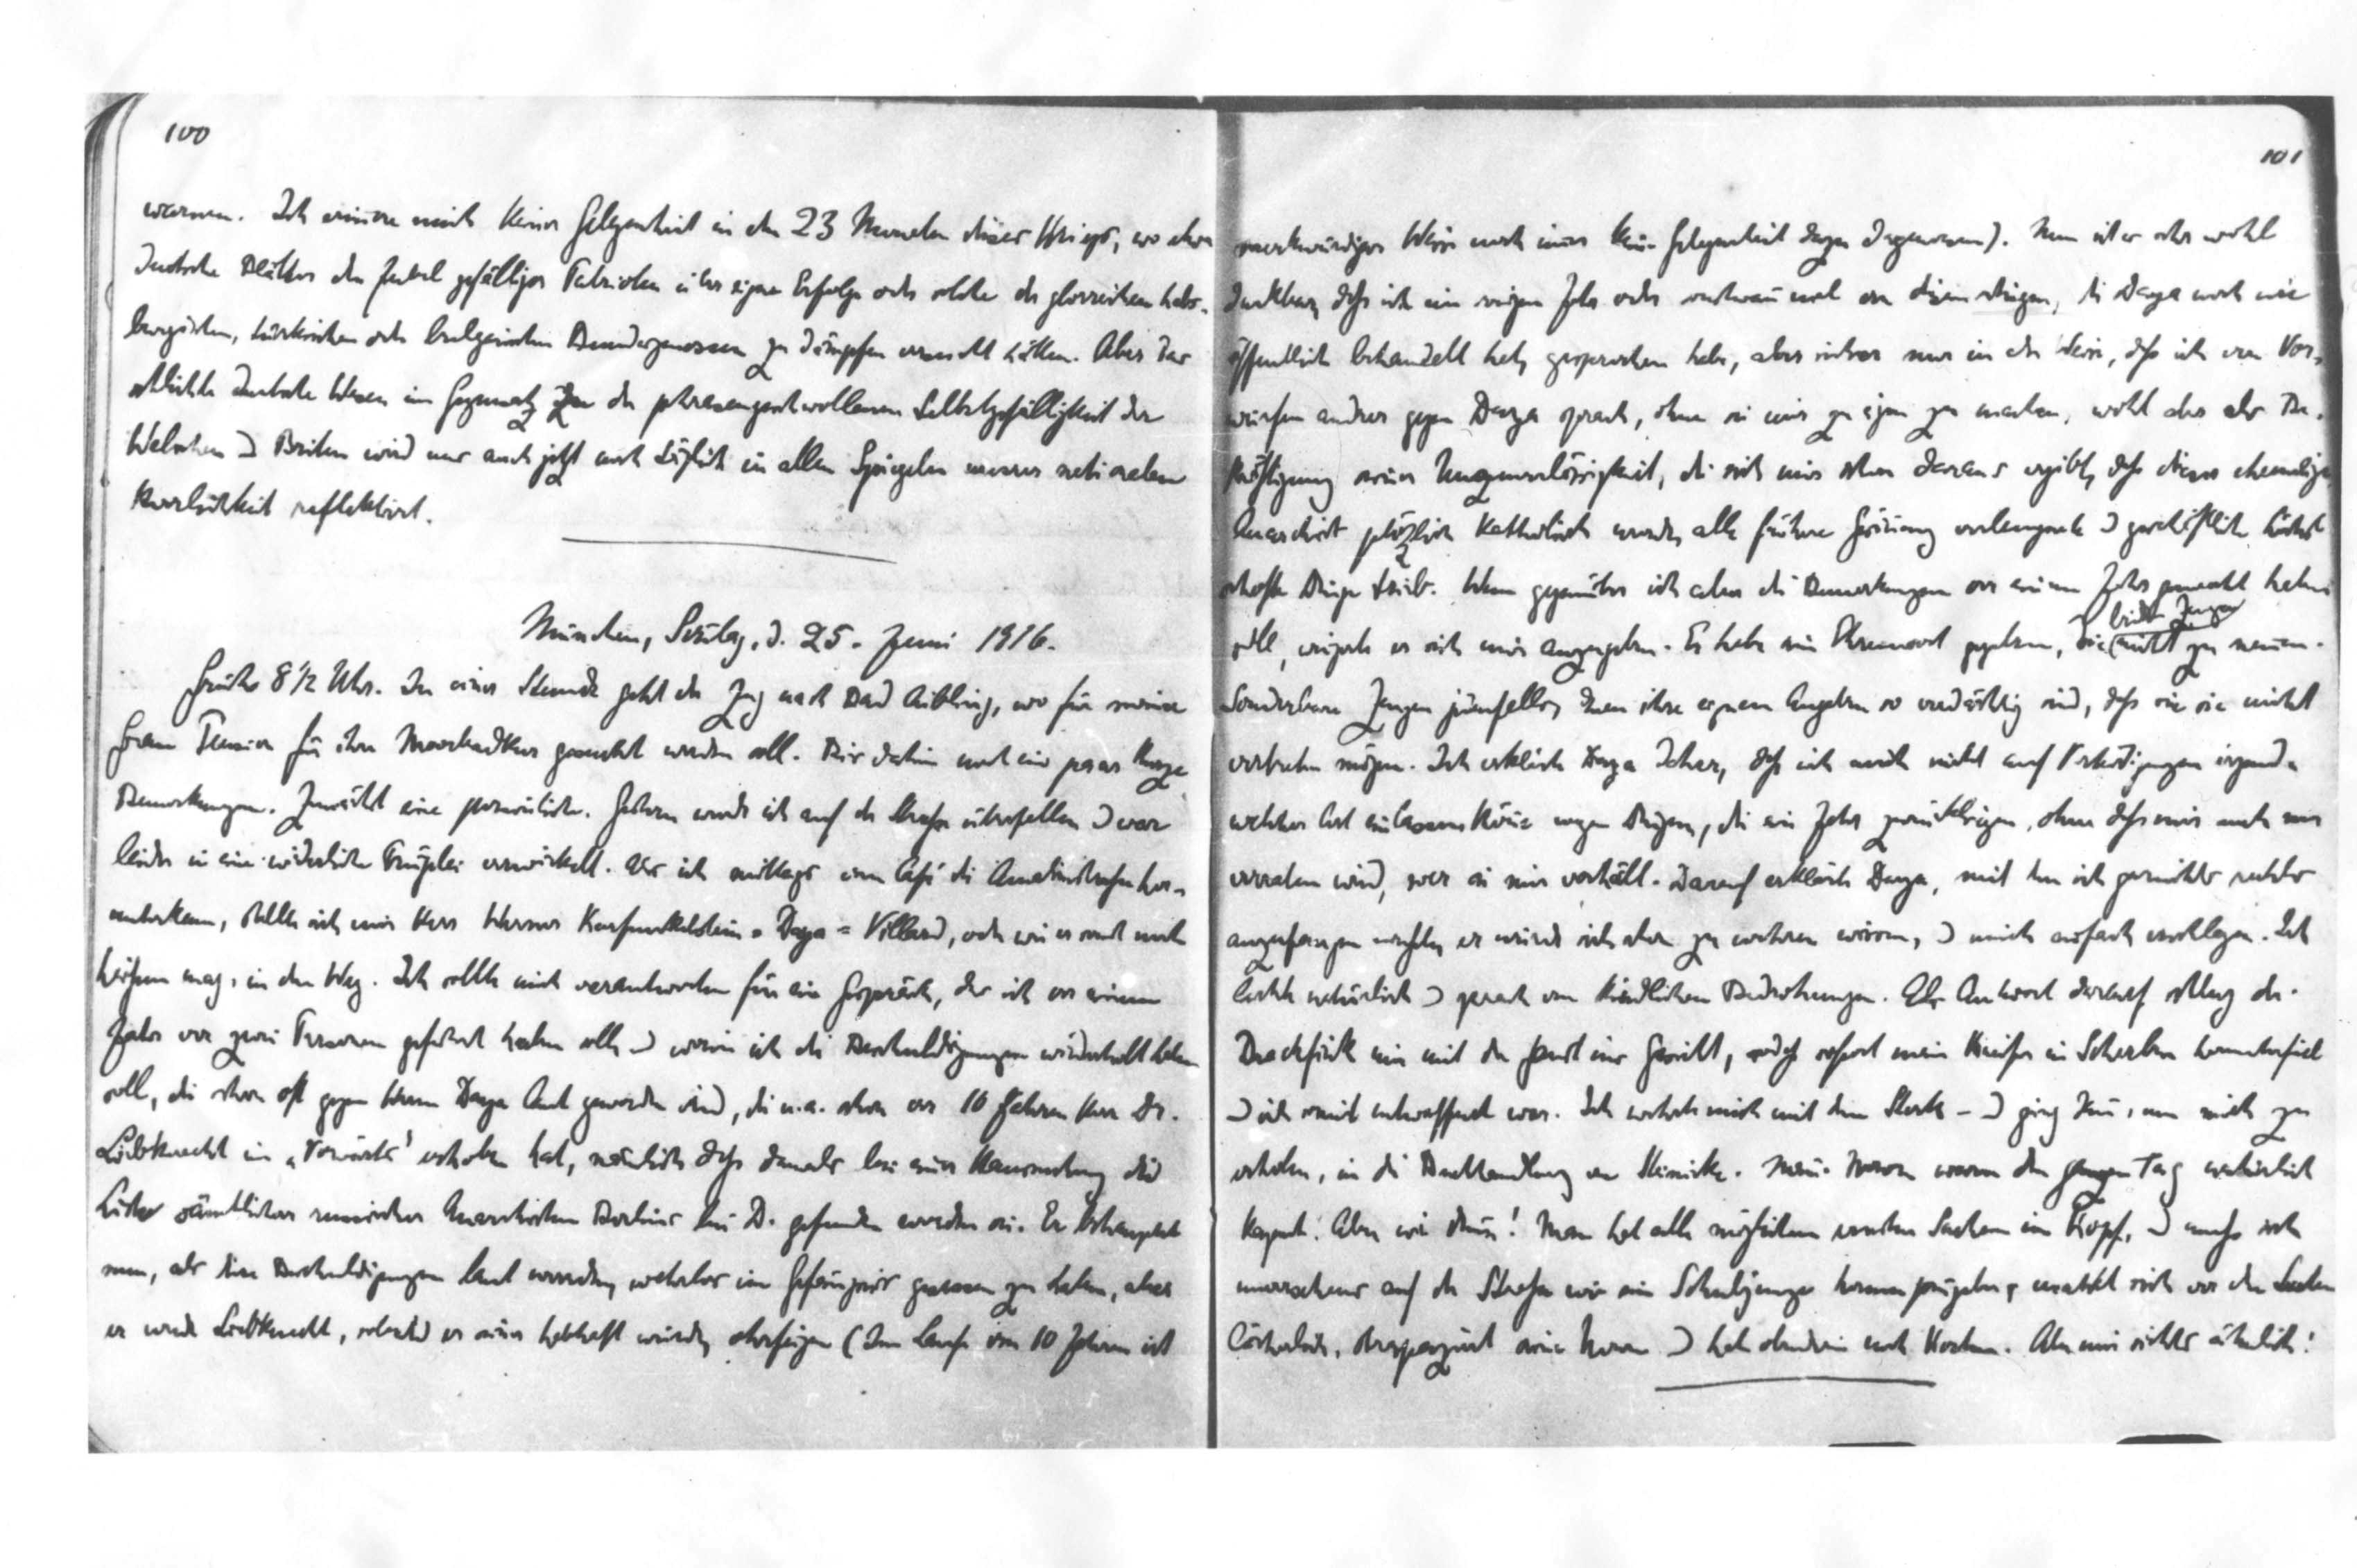 100
warnen. Ich erinnere mich keiner Gelegenheit in den 23 Monaten dieses Kriegs, wo etwa
deutsche Blätter den Jubel gefälliger Patrioten über eigne Erfolge oder solche der glorreichen habs-
burgischen, türkischen oder bulgarischen Bundesgenossen zu dämpfen versucht hätten. Aber das
schlichte deutsche Wesen im Gegensatz zu der phrasengeschwollenen Selbstgefälligkeit der
Welschen u Briten wird uns auch jetzt noch täglich in allen Spiegeln unsrer nationalen
reflektiert.
München, Sonntag, d. 25. Juni 1916.
Früh 8 ½ Uhr. In einer Stunde geht der Zug nach Bad Aibling, wo für meine
Frau Pension für ihre Moorbadkur gesucht werden soll. Bis dahin noch ein paar kurze
Bemerkungen. Zunächst eine persönliche. Gestern wurde ich auf der Straße überfallen u war
leider in eine widerliche Prügelei verwickelt. Als ich mittags vom Café die Amalienstraße her-
unterkam, stellte sich mir Herr Werner Karfunkelstein = Daya = Villard, oder wie er sonst noch
heißen mag, in den Weg. Ich sollte mich verantworten für ein Gespräch, das ich vor einem
Jahr vor zwei Personen geführt haben solle u worin ich die Beschuldigungen wiederholt haben
soll, die schon oft gegen Herrn Daya laut geworden sind, die u. a. schon vor 10 Jahren Herr Dr.
Liebknecht im „Vorwärts“ erhoben hat, nämlich daß damals bei einer Haussuchung die
Liste sämtlicher russischer Anarchisten Berlins bei D. gefunden worden sei. Er behauptet
nun, als diese Beschuldigungen laut wurden, wehrlos im Gefängnis gesessen zu haben, aber
er werde Liebknecht, sobald er seiner habhaft würde, ohrfeigen (Im Laufe von 10 Jahren ist
101
merkwürdiger Weise noch immer keine Gelegenheit dazu dagewesen). Nun ist es sehr wohl
denkbar, daß ich im vorigen Jahr oder auch mal von diesen Dingen, die Daya noch nie
öffentlich behandelt hat, gesprochen habe, aber sicher nur in der Weise, daß ich von Vor-
würfen andrer gegen Daya sprach, ohne sie mir zu eigen zu machen, wohl aber als Be-
kräftigung seiner Unzuverlässigkeit, die sich mir schon daraus ergibt, daß dieser ehemalige
Anarchist plötzlich Katholisch wurde, alle frühere Gesinnung verleugnete u geschäftlich höchst
Dinge trieb. Wem gegenüber ich aber die Bemerkungen vor einem Jahr gemacht haben
soll, weigerte er sich mir anzugeben. Er habe sein Ehrenwort gegeben, die beide Zeugen nicht zu nennen.
Sonderbare Zeugen jedenfalls, denen ihre eignen Angaben so verdächtig sind, daß sie sie nicht
vertreten mögen. Ich erklärte Daya daher, daß ich mich nicht auf Verteidigungen irgend-
welcher Art einlassen könne wegen Dingen, die ein Jahr zurückliegen, ohne daß mir auch nur
verraten wird, wer sie mir vorhält. Darauf erklärte Daya, mit dem ich garnichts rechtes
anzufangen wußte, er würde sich schon zu wehren wissen, u mich einfach verklagen. Ich
lachte natürlich u sprach von kindlichen Bedrohungen. Als Antwort darauf schlug der
mir mit der Faust ins Gesicht, sodaß sofort mein Kneifer in Scherben herunterfiel
u ich somit entwaffnet war. Ich wehrte mich mit dem Stock – u ging dann, um mich zu
erholen, in die Buchhandlung von Steinicke. Meine Nerven waren den ganzen Tag natürlich
kaput. Aber wie denn! Man hat alle möglichen ernsten Sachen im Kopf, u muß sich
unversehens auf der Straße wie ein Schuljunge herumprügeln, macht sich vor den Leuten
lächerlich, strapaziert seine Nerven u hat obendrein noch Kosten. Aber mir sieht's ähnlich!